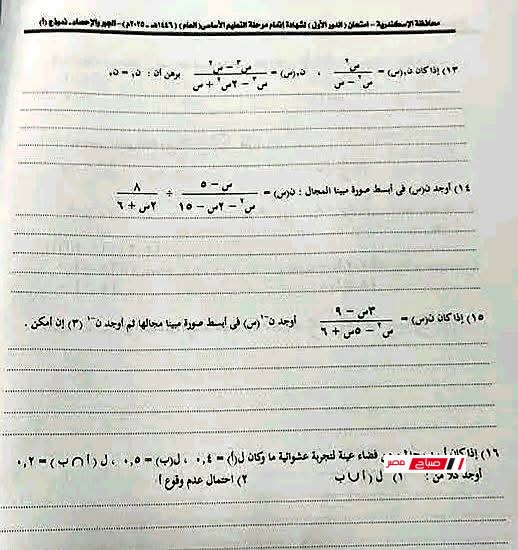 محافظة الإسكندرية – امتحان (الدور الأول) لشهادة إتمام مرحلة التعليم الأساسى (العام) (١٤٤٦هـ – ٢٠٢٥م) – الجبر والإحصاء – نموذج (أ)
١٣) إذا كان ن١(س) = س٢ / (س٣ – س٢) ، ن٢(س) = (س٣ – س٢) / (س٣ – ٢س٢ + س) برهن أن : ن١ = ن٢
١٤) أوجد ن(س) فى أبسط صورة مبينا المجال : ن(س) = (س – ٥) / (س٢ – ٢س – ١٥) ÷ ٨ / (٢س + ٦)
١٥) إذا كان ن(س) = (٣س – ٩) / (س٢ – ٥س + ٦) أوجد ن–١(س) فى أبسط صورة مبينا مجالها ثم أوجد ن–١(٣) إن أمكن .
١٦) إذا كان أ ، ب فضاء عينة لتجربة عشوائية ما وكان ل(أ) = ٠,٤ ، ل(ب) = ٠,٥ ، ل(أ ∩ ب) = ٠,٢
أوجد كلا من : ١) ل(أ ∪ ب) ٢) احتمال عدم وقوع أ
صباح مصر